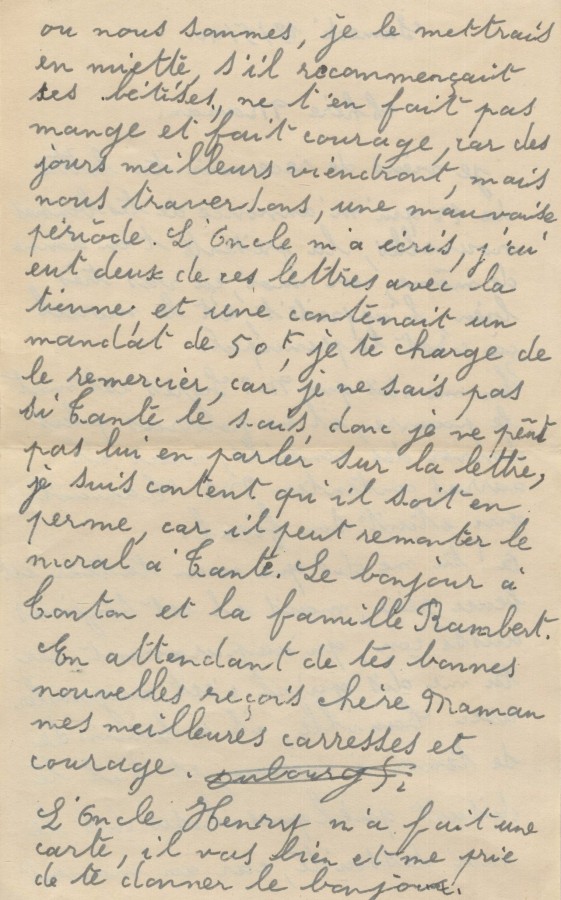 ou nous sommes, je le mettrais
en miette, s'il recommençait
ses bétises, ne t'en fait pas
mange et fait courage, car des
jours meilleurs viendront, mais
nous traversons, une mauvaise
période. L'Oncle m'a écris, j'ai
eut deux de ces lettres avec la
tienne, et une contenait un
mandat de 50f, je te charge de
le remercier, car je ne sais pas
si Tante le sais, donc je ne peut
pas lui en parler sur la lettre,
je suis content qu'il soit en
perme, car il peut remonter le
moral à Tante. Le bonjour à
Tonton et la famille Rambert.
En attendant de tes bonnes
nouvelles reçois chère Maman
mes meilleures carresses et
courage.
L'Oncle Henry m'a fait une
carte, il vas bien et me prie
de te donner le bonjour.